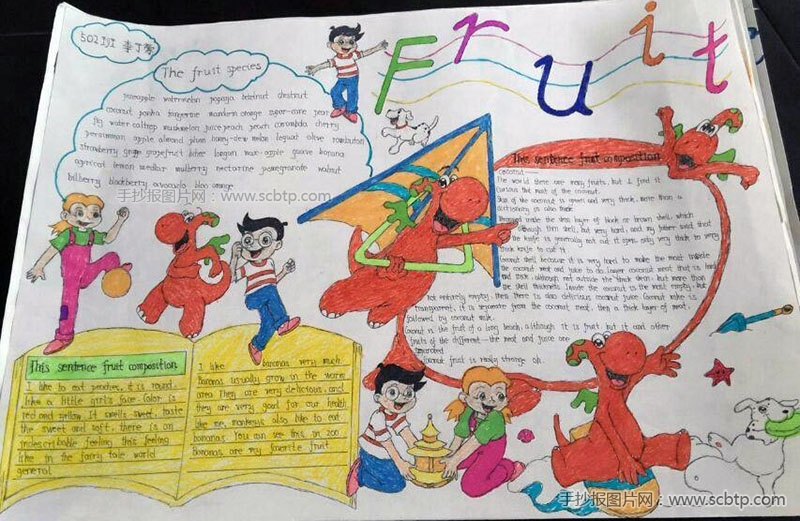 502班
Fruit
The fruit species
pineapple watermelon papaya betelnut chestnut
coconut ponka tangerine mandarin orange sugar-cane pear
fig water caltrop mushmelon juice peach peach carambola cherry
persimmon apple almond plum honey-dew melon loquat olive rambutan
strawberry grape grapefruit bitter longan wax-apple guava banana
apricot lemon medlar mulberry nectarine pomegranate walnut
bilberry blackberry avocado bloo orange
手抄报图片网:www.scbtp.com
This sentence fruit composition
I like to eat peaches, it is round,
like a little girl's face. Color is
red and yellow. It smells sweet, taste
the sweet and soft, there is an
indescribable feeling this feeling
like in the fairy tale world
general
I like bananas very much
banana usually grow in the warm
area They are very delicious, and
they are very good for our health
like me, monkeys also like to eat
bananas. You can see this in zoo
Bananas are my favorite fruit
The sentence fruit composition
coconut
The world there are many fruits, but I find it
curious the meat of the coconut.
Skin of the coconut is green and very thick, more than a
dictionary is also thick
inside the skin layer of black or brown shell, which
although thin shell, but very hard, and my father said that
the knife is generally not cut it open, only very thick to very
thick knife to cut it
Coconut shell because it is very hard to make the most
the coconut meat and juice to do. layer coconut meat that is hard
and thick, although not outside the thick skin, but more than
the shell thickness. Inside the coconut is the most empty, but
not entirely empty, then there is also delicious coconut juice. Coconut juice is
transparent, it is separate from the coconut meat, then a thick layer of meat,
followed by coconut milk.
Coconut is the fruit of a long beach, although it is fruit, but it and other
fruits of the different—the meat and juice are
separated
Coconut fruit is really strange oh.
手抄报图片网:www.scbtp.com